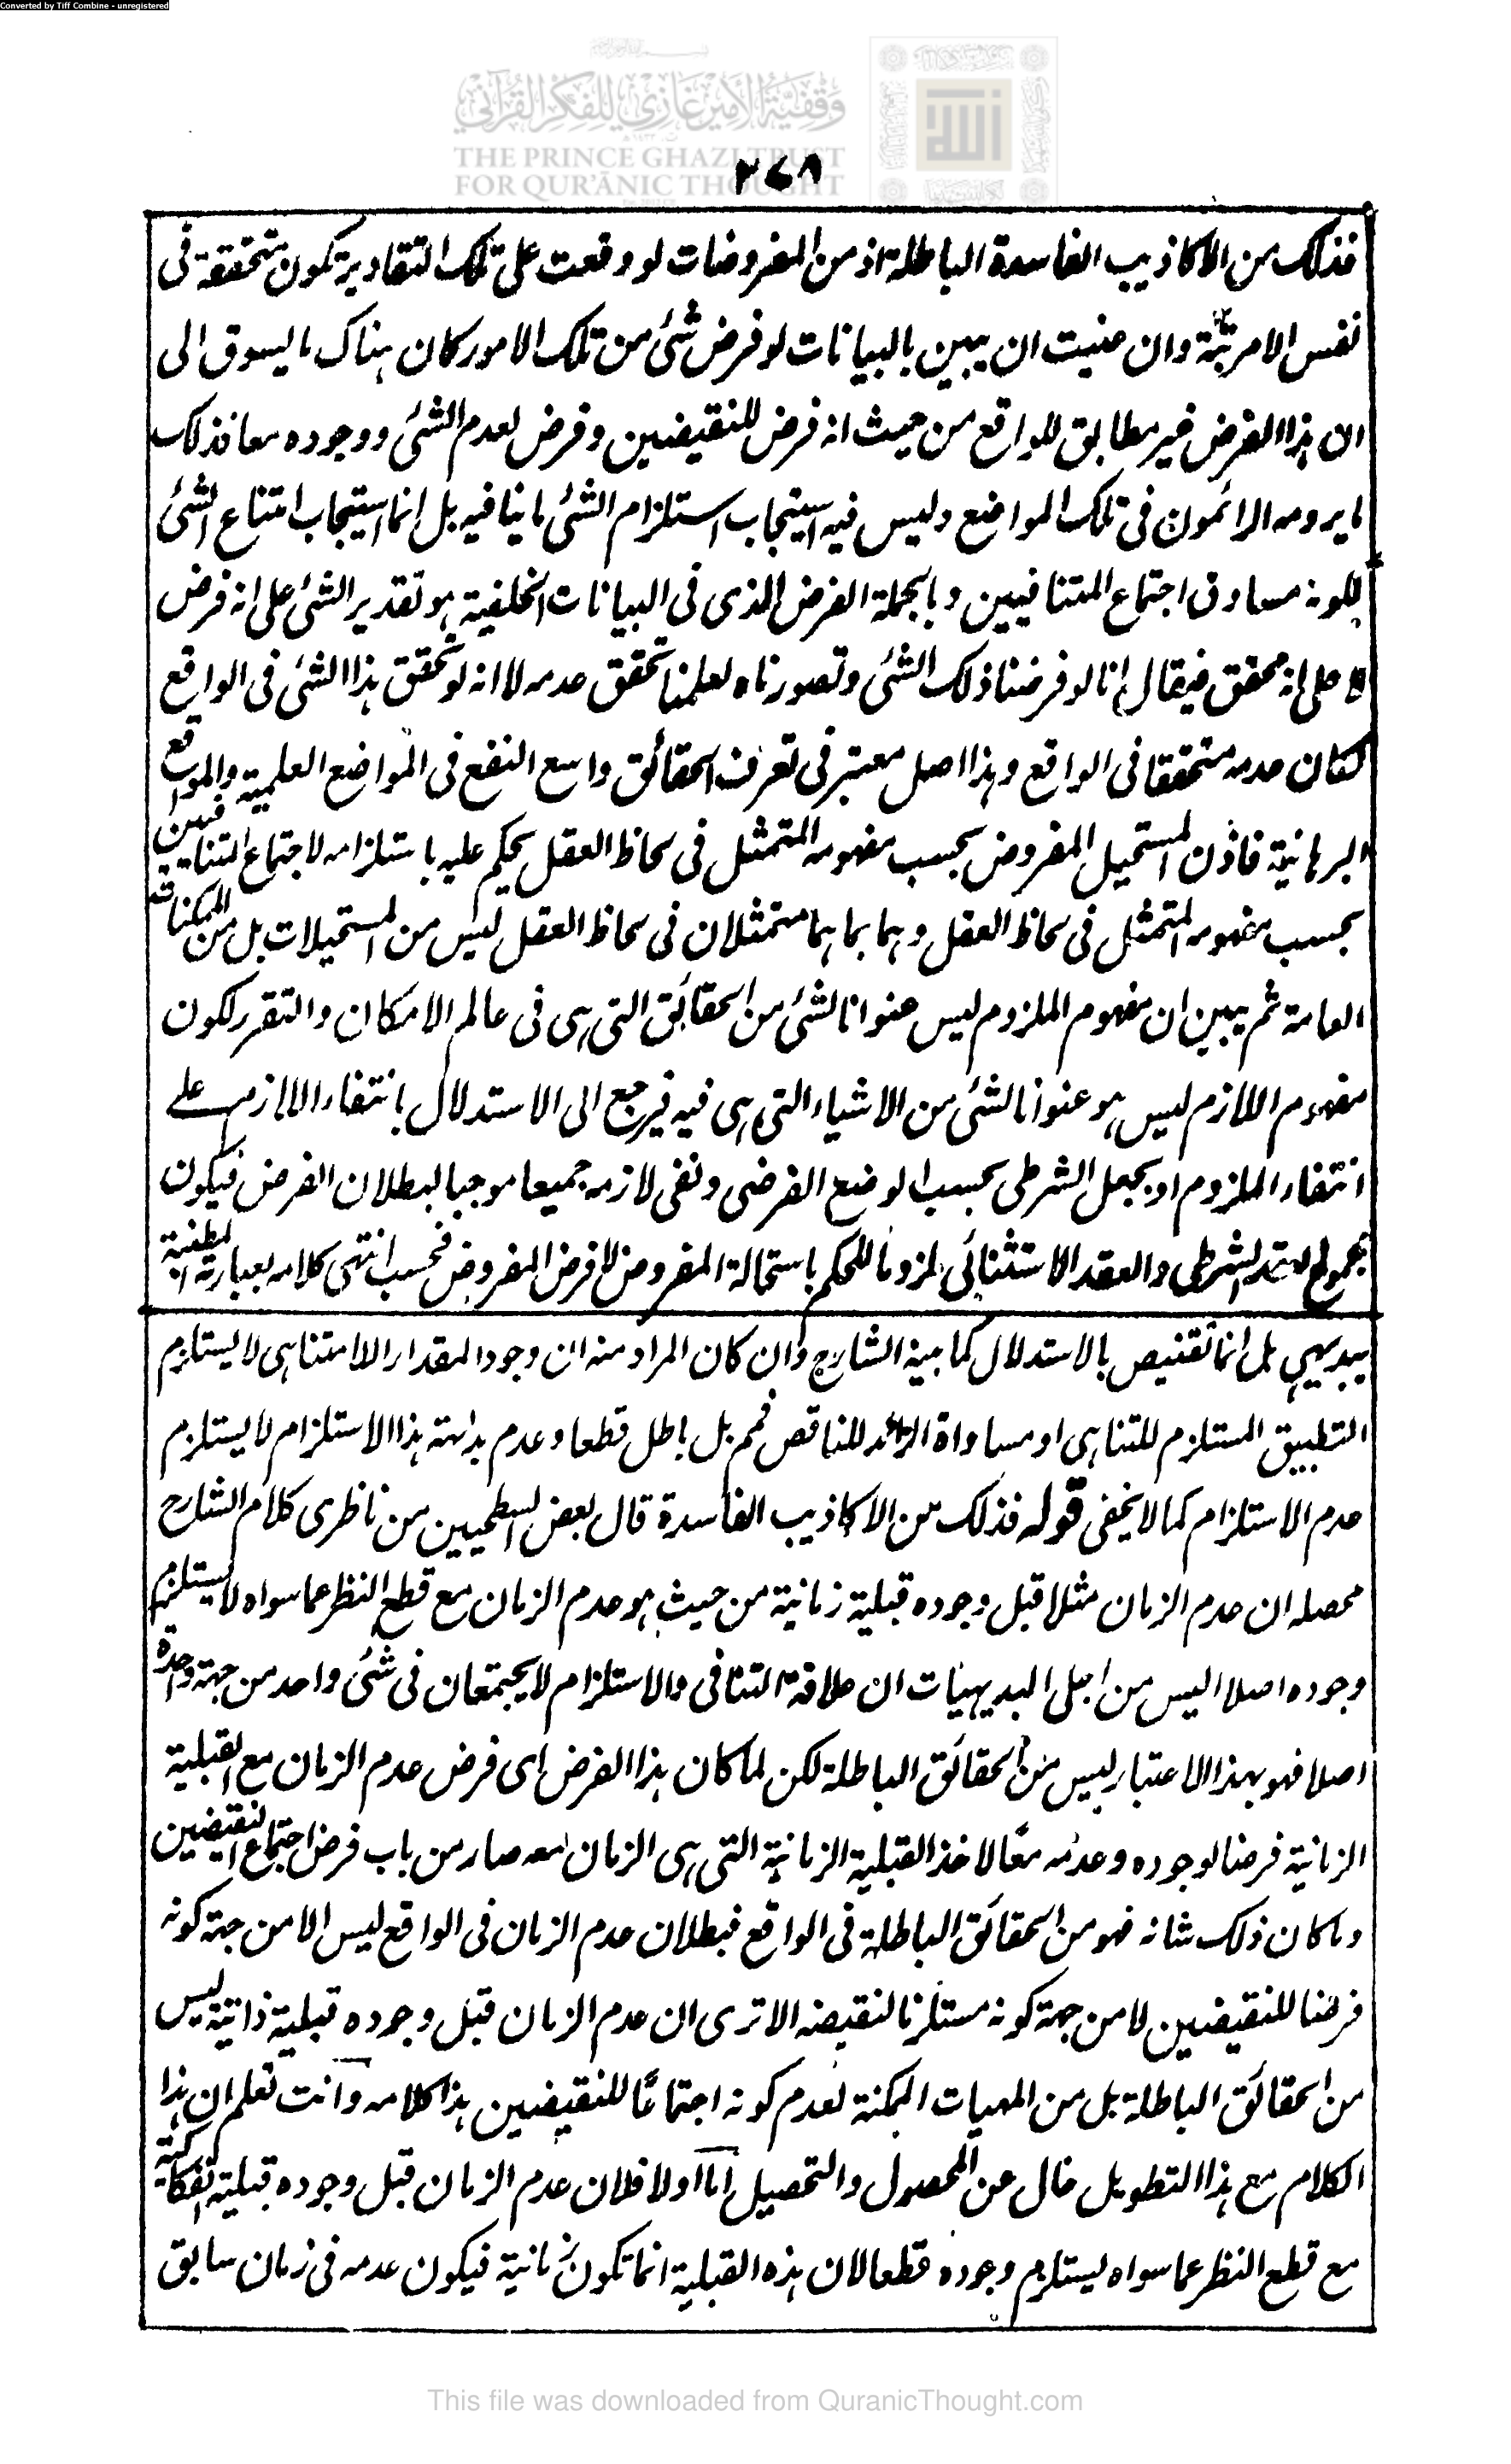 Converted by Tiff Combine - unregistered
وقفية الأمير غازي للفكر القرآني
THE PRINCE GHAZI TRUST
FOR QUR'ĀNIC THOUGHT
٢٧٨
فذلك من الاكاذيب الفاسدة الباطلة اذ من المفروضات لو وقعت على تلك التقادير تكون متحققة فى
نفس الامر بتة وان عنيت ان يبين بالبيانات لو فرض شئ من تلك الامور كان هناك ما يسوق الى
ان هذا الفرض غير مطابق للواقع من حيث انه فرض للنقيضين وفرض لعدم الشئ ووجوده معا فذلك
ما يرومه الرائمون فى تلك المواضع وليس فيه استيجاب استلزام الشئ ما ينافيه بل انما استيجاب امتناع الشئ
لكونه مصادق اجتماع المتنافيين وبالجملة الفرض الذى فى البيانات الخلفية هو تقدير الشئ على انه فرض
لا على انه محقق فيقال انا لو فرضنا ذلك الشئ وتصورناه لعلمنا تحقق عدمه لا انه لو تحقق هذا الشئ فى الواقع
لكان عدمه متحققا فى الواقع وهذا اصل معتبر فى تعرف الحقائق واسع النفع فى المواضع العلمية والمواقع
البرهانية فاذن المستحيل المفروض بحسب مفهومه المتمثل فى لحاظ العقل يحكم عليه باستلزامه لاجتماع المتنافيين
بحسب مفهومه المتمثل فى لحاظ العقل وهما بما هما متمثلان فى لحاظ العقل ليس من المستحيلات بل من الممكنات
العامة ثم يبين ان مفهوم الملزوم ليس عنوانا لشئ من الحقائق التى هى فى عالم الامكان والتقرر لكون
مفهوم اللازم ليس هو عنوانا لشئ من الاشياء التى هى فيه فيرجع الى الاستدلال بانتفاء اللازم على
انتفاء الملزوم او يجعل الشرطى بحسب الوضع الفرضى ونفى لازمه جميعا موجبا لبطلان الفرض فيكون
مجموع العقد الشرطى والعقد الاستثنائى ملزوما للحكم باستحالة المفروض لا فرض المفروض فحسب انتهى كلامه بعبارته المطنبة
ببديهى بل انما تقنيص بالاستدلال كما بينه الشارح وان كان المراد منه ان وجود المقدار اللامتناهى لا يستلزم
التطبيق المستلزم للتناهى او مساواة الزائد للناقص فمم بل باطل قطعا وعدم بداهة هذا الاستلزام لا يستلزم
عدم الاستلزام كما لا يخفى قوله فذلك من الاكاذيب الفاسدة قال بعض السطحيين من ناظرى كلام الشارح
محصله ان عدم الزمان مثلا قبل وجوده قبلية زمانية من حيث هو عدم الزمان مع قطع النظر عما سواه لا يستلزم
وجوده اصلا اليس من اجلى البديهيات ان علاقة التنافى والاستلزام لا يجتمعان فى شئ واحد من جهة واحدة
اصلا فهو بهذا الاعتبار ليس من الحقائق الباطلة لكن لما كان هذا الفرض اى فرض عدم الزمان مع القبلية
الزمانية فرضا لوجوده وعدمه معًا لاخذ القبلية الزمانية التى هى الزمان معه صار من باب فرض اجتماع النقيضين
وما كان ذلك شانه فهو من الحقائق الباطلة فى الواقع فبطلان عدم الزمان فى الواقع ليس الا من جهة كونه
فرضا للنقيضين لا من جهة كونه مستلزما لنقيضه الا ترى ان عدم الزمان قبل وجوده قبلية ذاتية ليس
من الحقائق الباطلة بل من المهيات الممكنة لعدم كونه اجتماعًا للنقيضين هذا كلامه وانت تعلم ان هذا
الكلام مع هذا التطويل خال عن المحصول والتحصيل اما اولا فلان عدم الزمان قبل وجوده قبلية انفكاكية
مع قطع النظر عما سواه يستلزم وجوده قطعا لان هذه القبلية انما تكون زمانية فيكون عدمه فى زمان سابق
This file was downloaded from QuranicThought.com